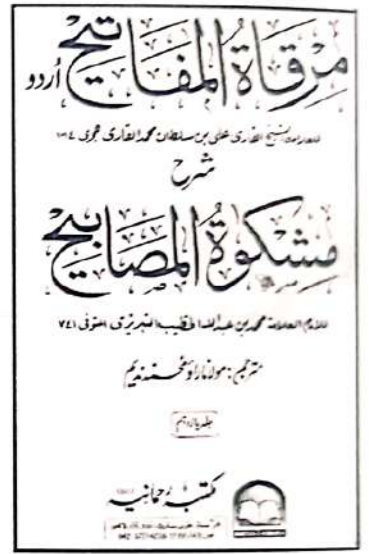 مرقاة المفاتيح اردو
للعلامة الشيخ القاری علی بن سلطان محمد القاری
شرح
مشکوة المصابیح
للامام العلامة محمد بن عبد الله الخطیب التبریزی المتوفی ٧٤١
مترجم: مولانا راؤ محمد ندیم
جلد یازدہم
مکتبہ رحمانیہ